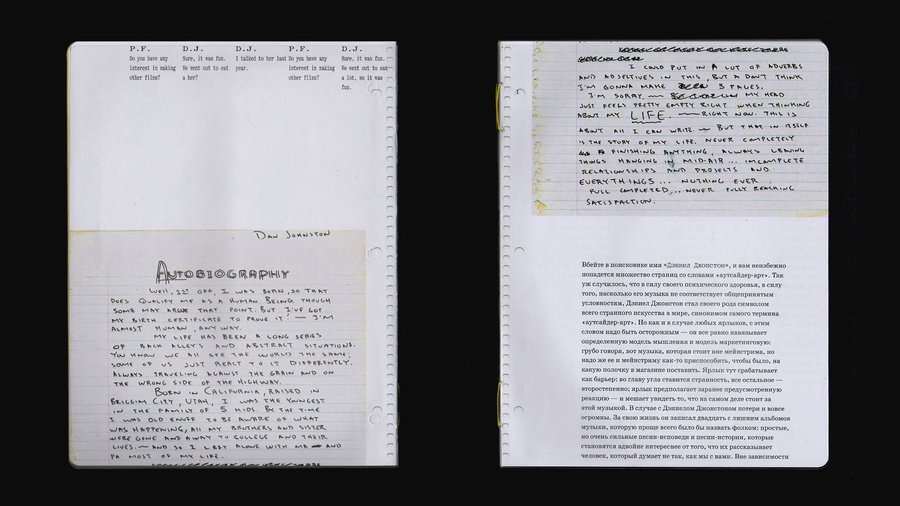 P.F.
Do you have any
interest in making
other films?
D.J.
Sure, it was fun.
We went out to eat
a her?
D.J.
I talked to her last
year.
P.F.
Do you have any
interest in making
other films?
D.J.
Sure, it was fun.
We went out to eat
a lot, so it was
fun.
Dan Johnston
Autobiography
Well, 1st off, I was born, so that
does qualify me as a human being though
some may argue that point. But I've got
my birth certificate to prove it! — I'm
almost human, anyway.
My life has been a long series
of back alley's and abstract situations.
You know we all see the world the same,
some of us just react to it differently.
Always traveling against the grain and on
the wrong side of the highway.
Born in California, raised in
Briggim City, Utah, I was the youngest
in the family of 5 kids. By the time
I was old enuff to be aware of what
was happening, all my brothers and sister
were gone and away to college and their
lives. — And so I left alone with ma and
pa most of my life.
I could put in a lot of adverbs
and adjectives in this, but a don't think
I'm gonna make 3 pages.
I'm sorry. — my head
just feels pretty empty right when thinking
about my LIFE. — right now. This is
about all I can write. — But that in itself
is the story of my life. Never completely
finishing anything, always leaving
things hanging in mid-air... imcomplete
relationships and projects and
everythings... nothing ever
full completed... never fully reaching
satisfaction.
Вбейте в поисковике имя «Дэниел Джонстон», и вам неизбежно
попадется множество страниц со словами «аутсайдер-арт». Так
уж случилось, что в силу своего психического здоровья, в силу
того, насколько его музыка не соответствует общепринятым
условностям, Дэниел Джонстон стал своего рода символом
всего странного искусства в мире, синонимом самого термина
«аутсайдер-арт». Но как и в случае любых ярлыков, с этим
словом надо быть осторожным — он все равно навязывает
определенную модель мышления и модель маркетинговую:
грубо говоря, вот музыка, которая стоит вне мейнстрима, но
надо же ее и мейнстриму как-то приспособить, чтобы было, на
какую полочку в магазине поставить. Ярлык тут срабатывает
как барьер: во главу угла ставится странность, все остальное —
второстепенно; ярлык предполагает заранее предусмотренную
реакцию — и мешает увидеть то, что на самом деле стоит за
этой музыкой. В случае с Дэниелом Джонстоном потери и вовсе
огромны. За свою жизнь он записал двадцать с лишним альбомов
музыки, которую проще всего было бы назвать фолком: простые,
но очень сильные песни-исповеди и песни-истории, которые
становятся вдвойне интереснее от того, что их рассказывает
человек, который думает не так, как мы с вами. Вне зависимости